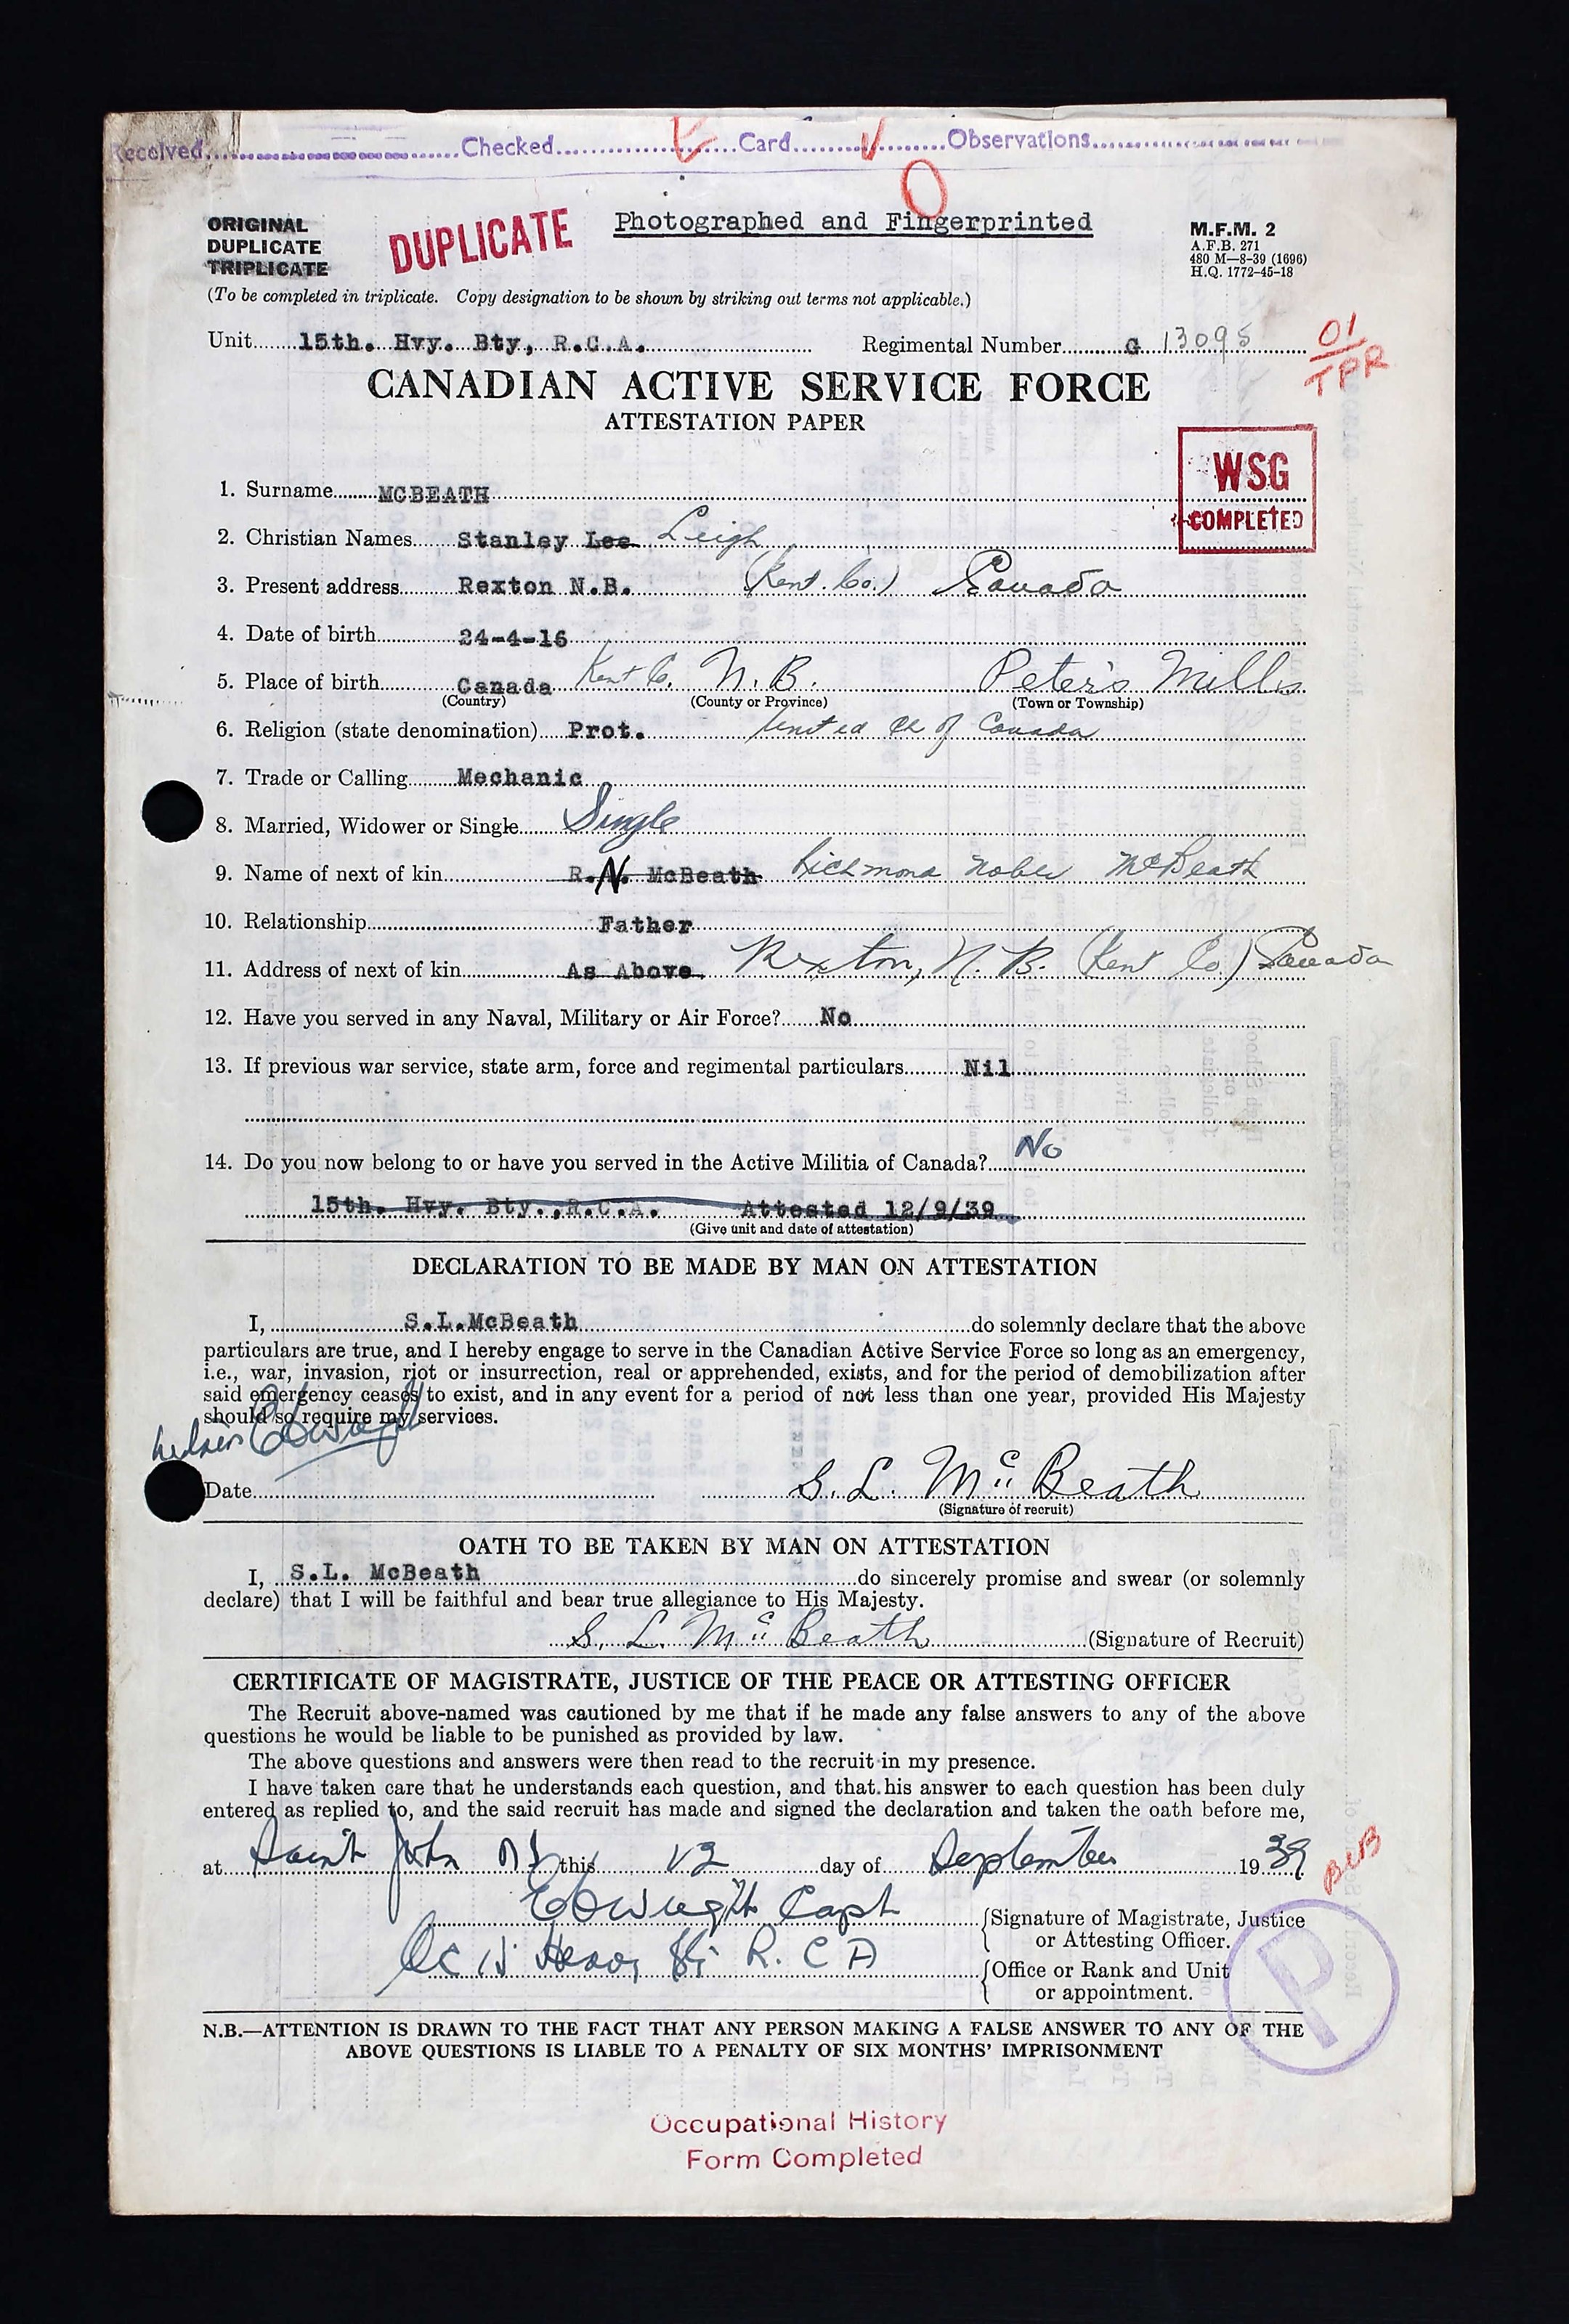 Received Checked Card Observations
ORIGINAL
DUPLICATE
TRIPLICATE
DUPLICATE
Photographed and Fingerprinted
M.F.M. 2
A.F.B. 271
480 M—8-39 (1696)
H.Q. 1772-45-18
(To be completed in triplicate. Copy designation to be shown by striking out terms not applicable.)
Unit 15th. Hvy. Bty, R.C.A. Regimental Number G 13095
01
TPR
CANADIAN ACTIVE SERVICE FORCE
ATTESTATION PAPER
WSG
COMPLETED
1. Surname MCBEATH
2. Christian Names Stanley Lee Leigh
3. Present address Rexton N.B. (Kent. Co.) Canada
4. Date of birth 24-4-16
5. Place of birth Canada Kent Co. N.B. Peter's Mills
(Country) (County or Province) (Town or Township)
6. Religion (state denomination) Prot. United Ch of Canada
7. Trade or Calling Mechanic
8. Married, Widower or Single Single
9. Name of next of kin R.N. McBeath Richmond Noble McBeath
10. Relationship Father
11. Address of next of kin As Above. Rexton, N.B. (Kent Co) Canada
12. Have you served in any Naval, Military or Air Force? No
13. If previous war service, state arm, force and regimental particulars Nil
14. Do you now belong to or have you served in the Active Militia of Canada? No
15th. Hvy. Bty., R.C.A. Attested 12/9/39
(Give unit and date of attestation)
DECLARATION TO BE MADE BY MAN ON ATTESTATION
I, S.L.McBeath do solemnly declare that the above
particulars are true, and I hereby engage to serve in the Canadian Active Service Force so long as an emergency,
i.e., war, invasion, riot or insurrection, real or apprehended, exists, and for the period of demobilization after
said emergency ceases to exist, and in any event for a period of not less than one year, provided His Majesty
should so require my services.
Date S. L. McBeath
(Signature of recruit)
OATH TO BE TAKEN BY MAN ON ATTESTATION
I, S.L. McBeath do sincerely promise and swear (or solemnly
declare) that I will be faithful and bear true allegiance to His Majesty.
S. L. McBeath (Signature of Recruit)
CERTIFICATE OF MAGISTRATE, JUSTICE OF THE PEACE OR ATTESTING OFFICER
The Recruit above-named was cautioned by me that if he made any false answers to any of the above
questions he would be liable to be punished as provided by law.
The above questions and answers were then read to the recruit in my presence.
I have taken care that he understands each question, and that his answer to each question has been duly
entered as replied to, and the said recruit has made and signed the declaration and taken the oath before me,
at Saint John NB this 12 day of September 1939
Capt
Signature of Magistrate, Justice
or Attesting Officer.
OC 15 Heavy Bty R.C.A
Office or Rank and Unit
or appointment.
P
N.B.—ATTENTION IS DRAWN TO THE FACT THAT ANY PERSON MAKING A FALSE ANSWER TO ANY OF THE
ABOVE QUESTIONS IS LIABLE TO A PENALTY OF SIX MONTHS' IMPRISONMENT
Occupational History
Form Completed